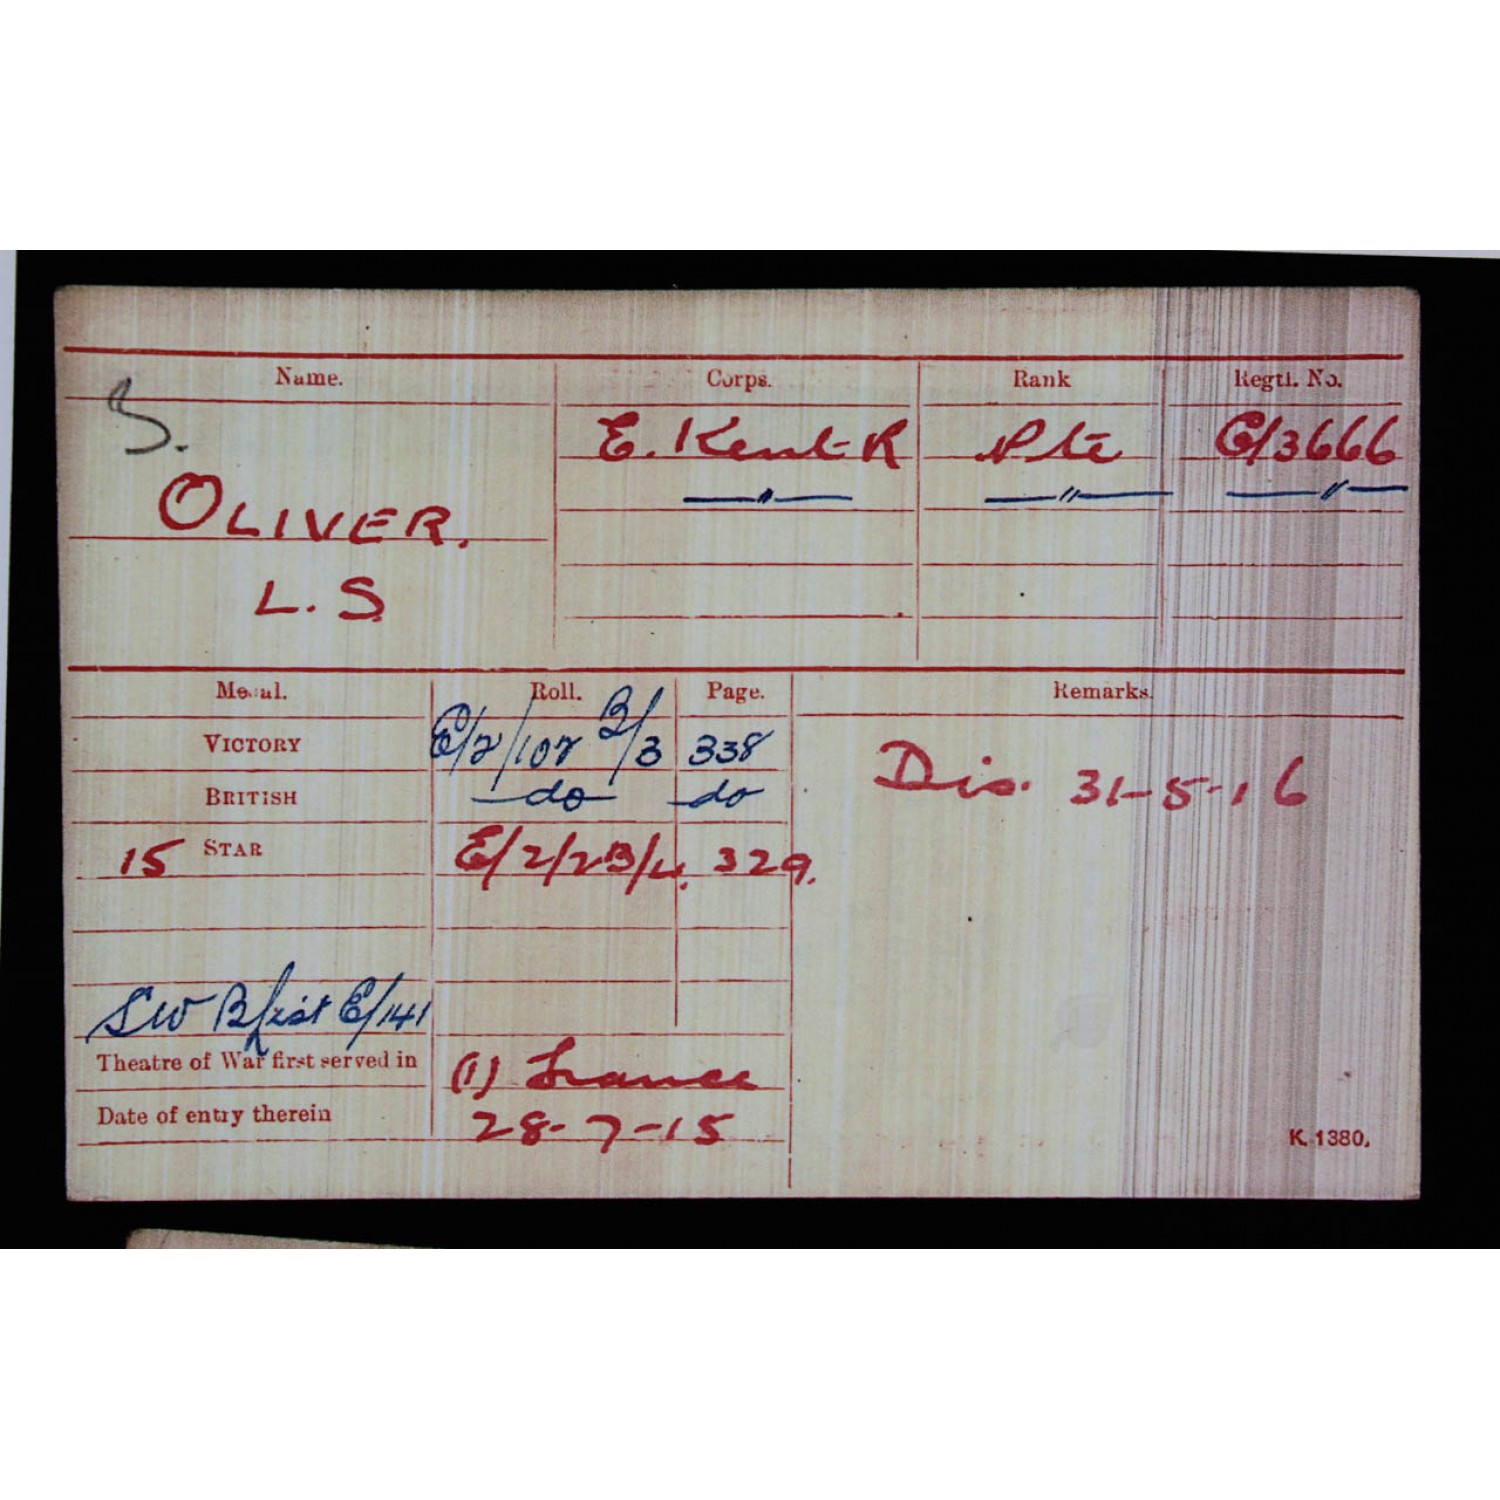 Name. Corps. Rank Regtl. No.
B.
E. Kent R Pte G/3666
—"— —"— —"—
OLIVER.
L. S
Medal. Roll. Page. Remarks.
VICTORY E/2/102 B/3 338
BRITISH do do
Dis. 31-5-16
15 STAR E/2/2B/4. 329.
SW B List E/141
Theatre of War first served in (1) France
Date of entry therein 28-7-15
K. 1380.